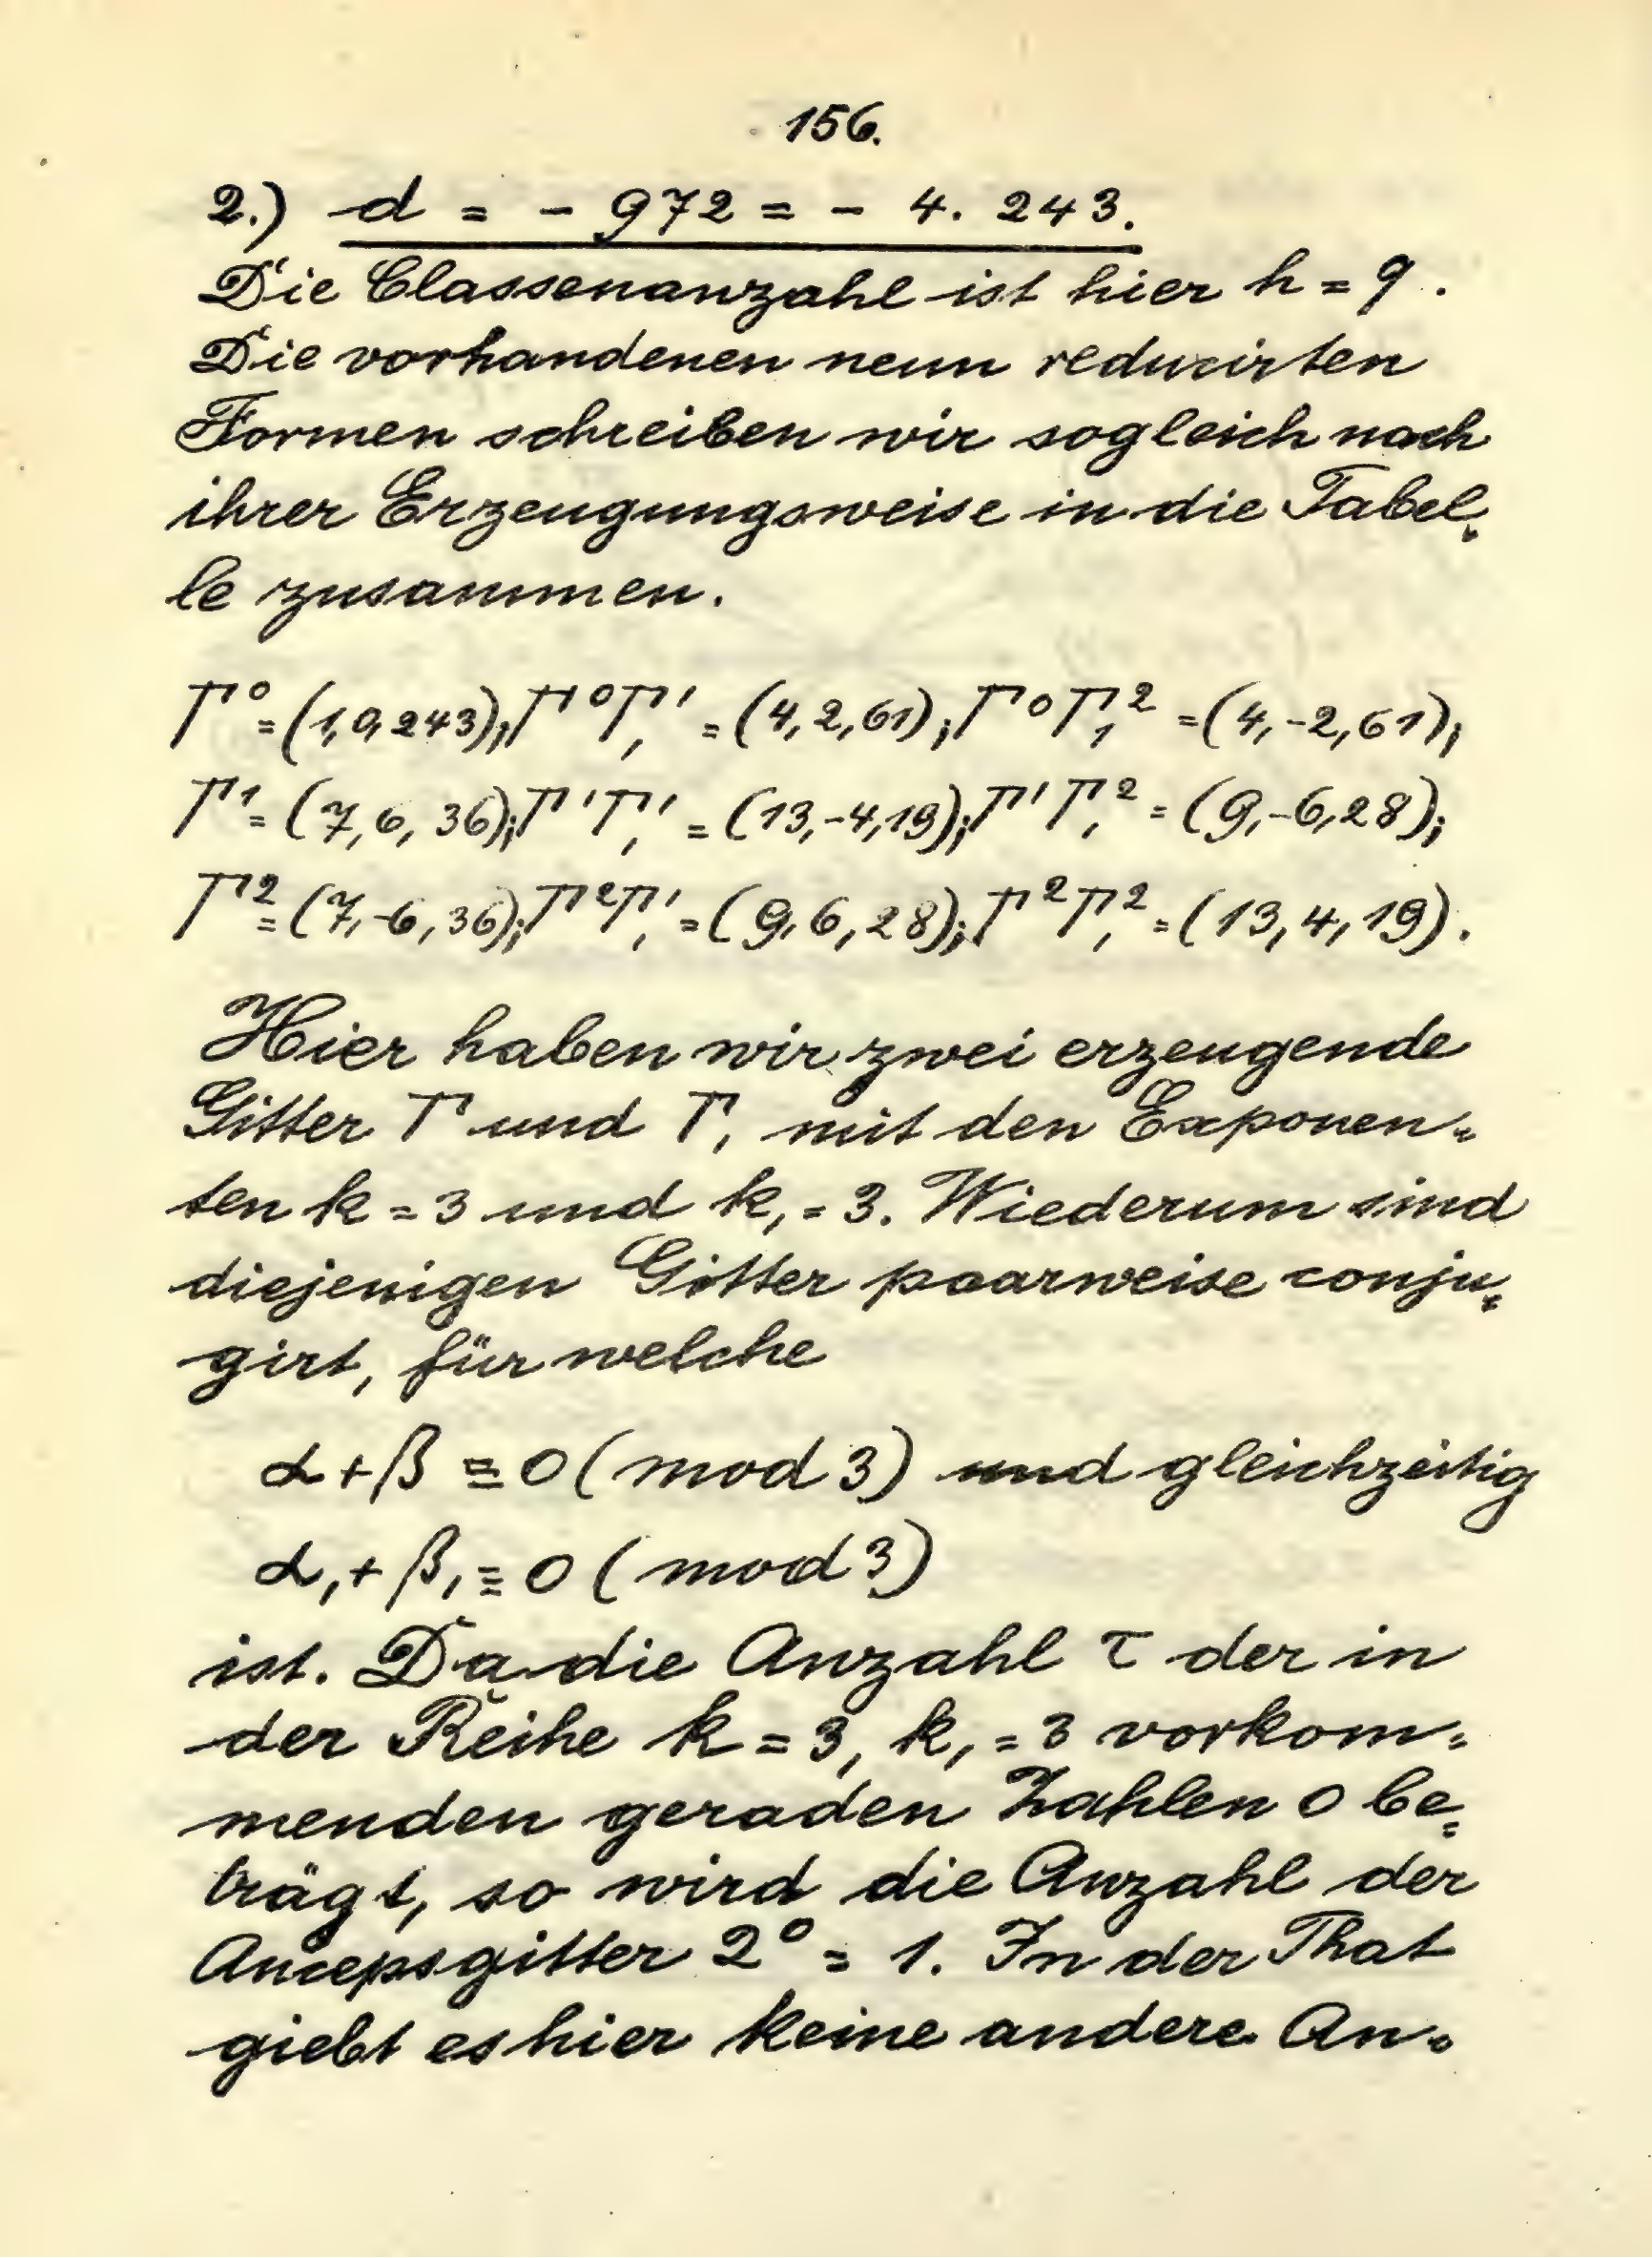 156.
2.) d = - 972 = - 4. 243.
Die Classenanzahl ist hier h = 9.
Die vorhandenen neun reducirten
Formen schreiben wir sogleich nach
ihrer Erzeugungsweise in die Tabel=
le zusammen.
Γ⁰ = (1,0,243); Γ⁰Γ₁¹ = (4,2,61); Γ⁰Γ₁² = (4,-2,61);
Γ¹ = (7,6,36); Γ¹Γ₁¹ = (13,-4,19); Γ¹Γ₁² = (9,-6,28);
Γ² = (7,-6,36); Γ²Γ₁¹ = (9,6,28); Γ²Γ₁² = (13,4,19).
Hier haben wir zwei erzeugende
Gitter Γ und Γ₁ mit den Exponen=
ten k = 3 und k₁ = 3. Wiederum sind
diejenigen Gitter paarweise conju=
girt, für welche
α + β ≡ 0 (mod 3) und gleichzeitig
α₁ + β₁ ≡ 0 (mod 3)
ist. Da die Anzahl τ der in
der Reihe k = 3, k₁ = 3 vorkom=
menden geraden Zahlen 0 be=
trägt, so wird die Anzahl der
Ancepsgitter 2⁰ = 1. In der That
giebt es hier keine andere An=